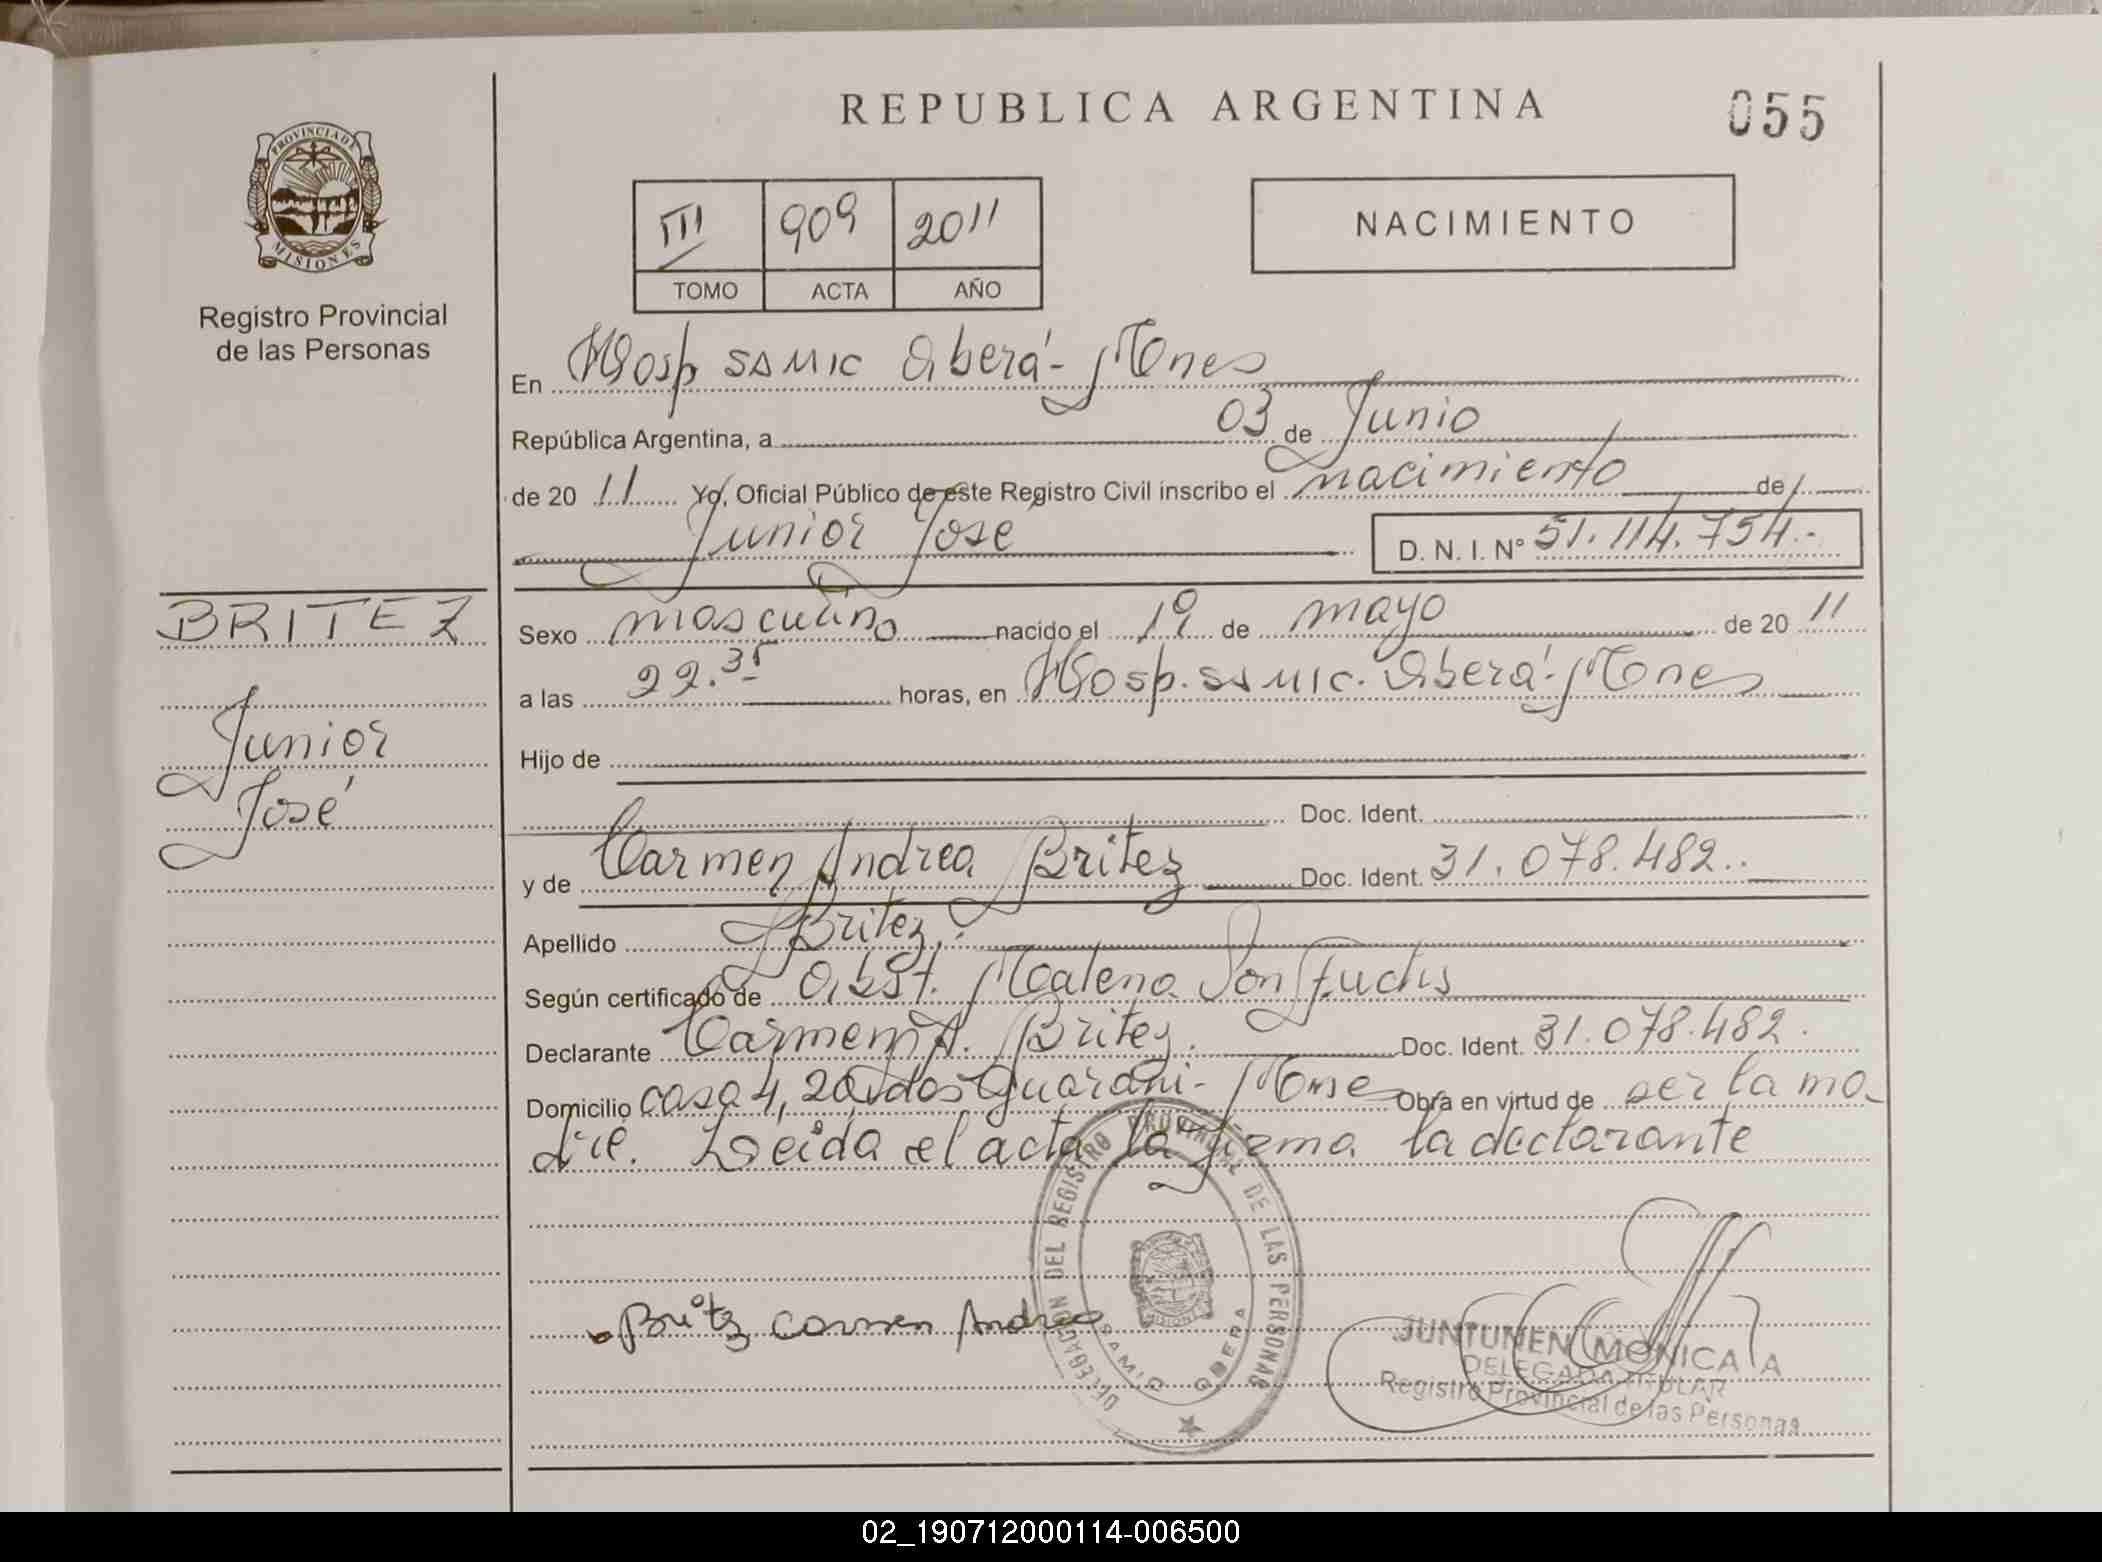 REPUBLICA ARGENTINA
055
PROVINCIA DE
MISIONES
Registro Provincial
de las Personas
III 909 2011
TOMO ACTA AÑO
NACIMIENTO
En Hosp SAMIC Oberá - Mnes
República Argentina, a 03 de Junio
de 20 11 Yo, Oficial Público de este Registro Civil inscribo el nacimiento de
Junior José
D. N. I. Nº 51.114.754.-
BRITEZ
Junior
José
Sexo masculino nacido el 1º de mayo de 20 11
a las 22.35 horas, en Hosp. SAMIC. Oberá - Mnes
Hijo de
Doc. Ident.
y de Carmen Andrea Britez Doc. Ident. 31.078.482..
Apellido Britez.
Según certificado de Obst. Malena Von
Declarante Carmen A. Britez. Doc. Ident. 31.078.482.
Domicilio casa 4, Guaraní - Mnes Obra en virtud de ser la ma-
dre. Leída el acta la firma la declarante
Britez Carmen Andrea
DELEGACION DEL REGISTRO PROVINCIAL DE LAS PERSONAS
SAMIC OBERA
JUNTUNEN MONICA A
DELEGADA TITULAR
Registro Provincial de las Personas
02_190712000114-006500